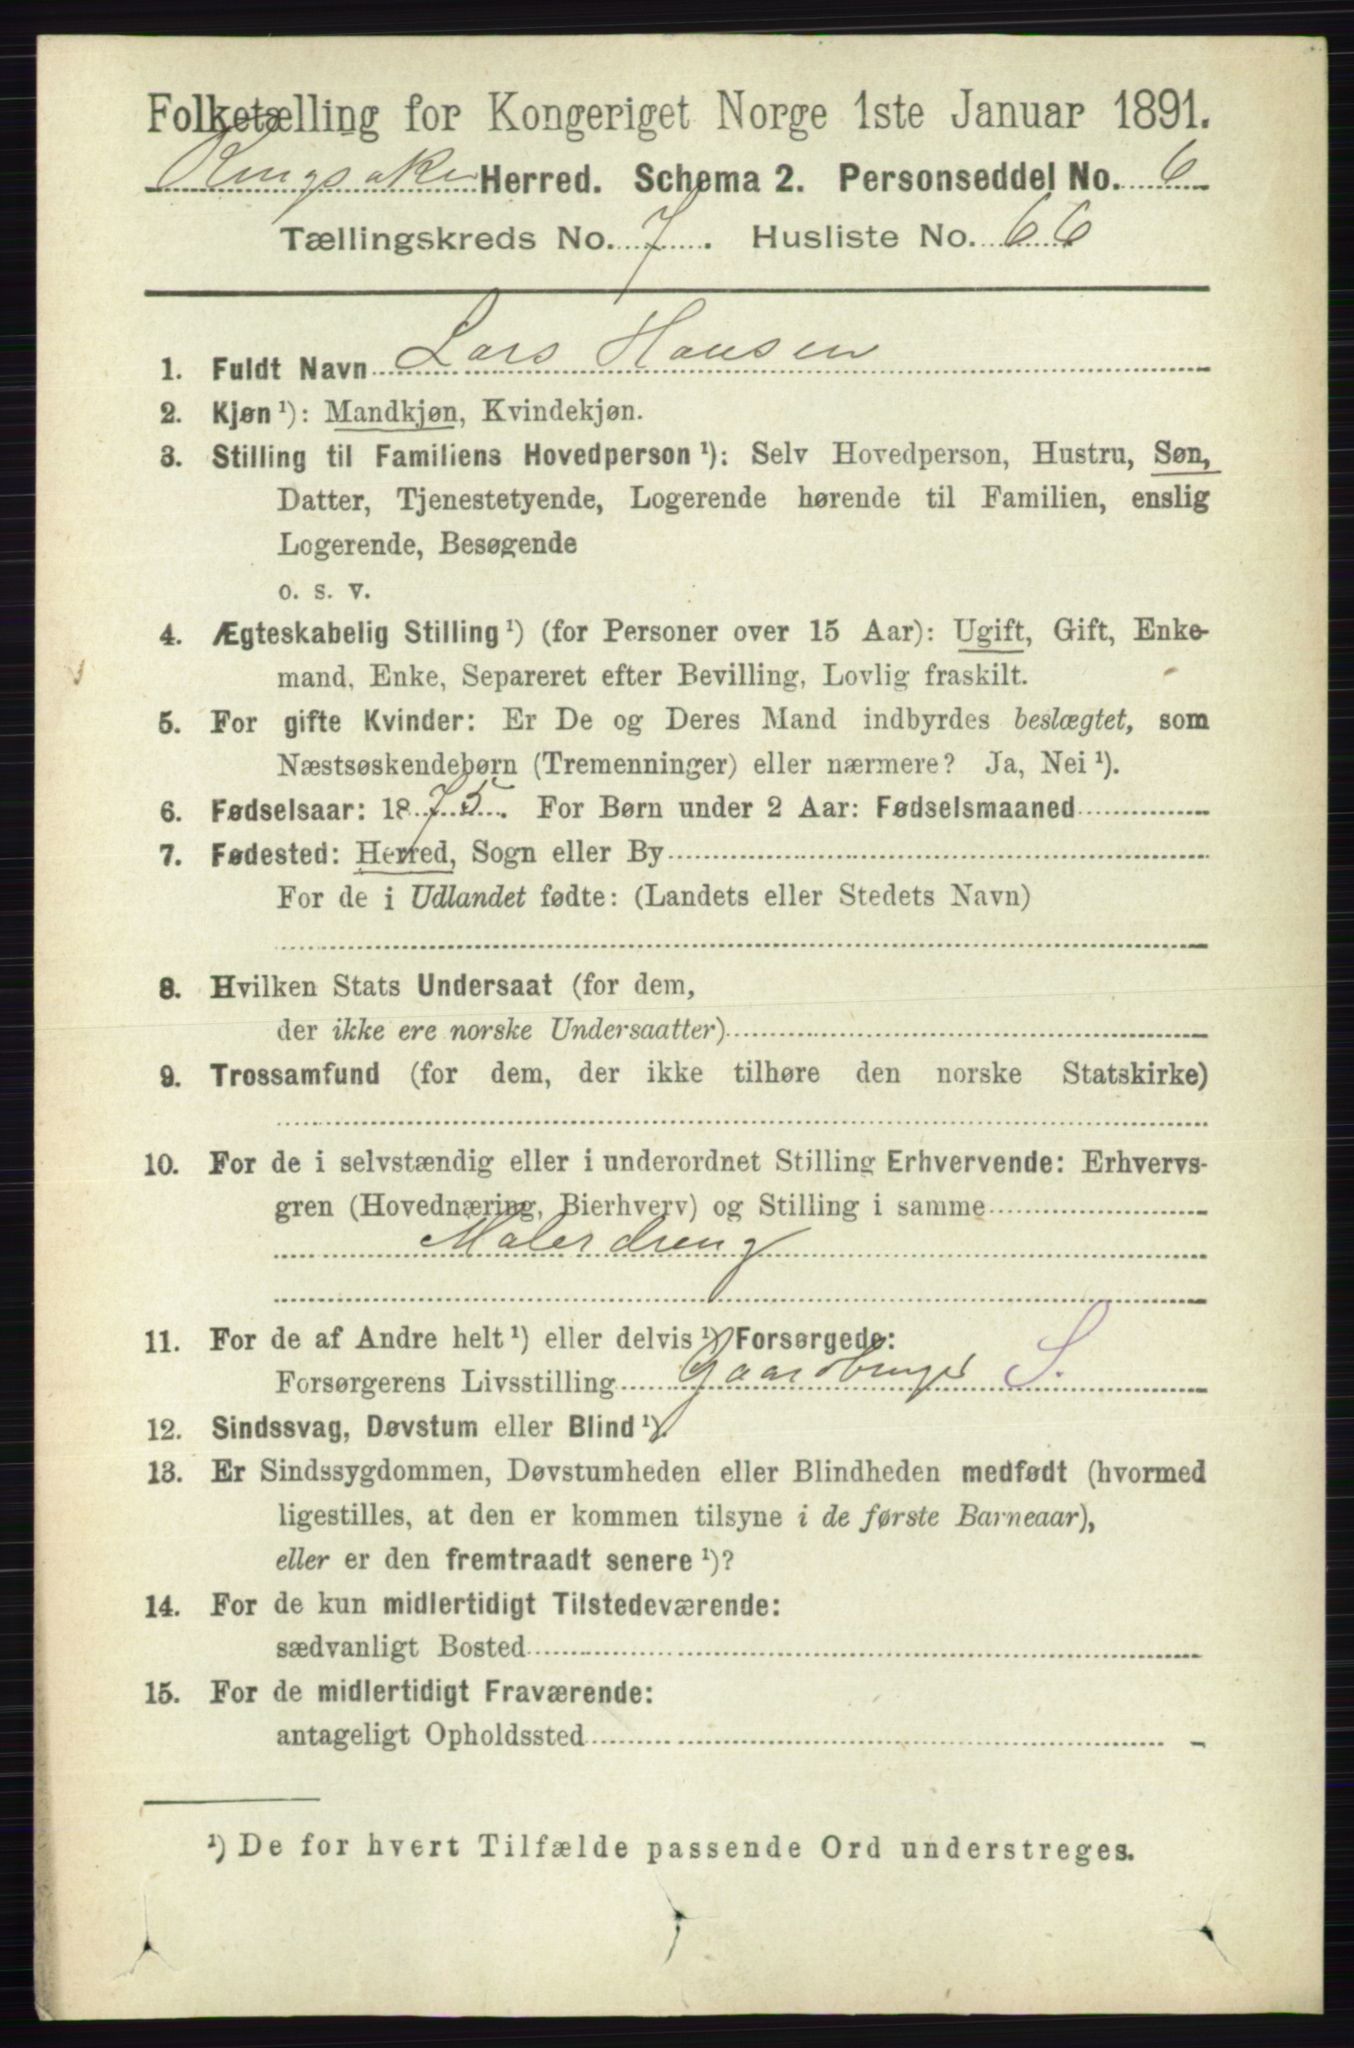 Folketælling for Kongeriget Norge 1ste Januar 1891.
Ringsaker Herred. Schema 2. Personseddel No. 6
Tællingskreds No. 7. Husliste No. 66
1. Fuldt Navn Lars Hansen
2. Kjøn ¹): Mandkjøn, Kvindekjøn.
3. Stilling til Familiens Hovedperson ¹): Selv Hovedperson, Hustru, Søn,
Datter, Tjenestetyende, Logerende hørende til Familien, enslig
Logerende, Besøgende
o. s. v.
4. Ægteskabelig Stilling ¹) (for Personer over 15 Aar): Ugift, Gift, Enke-
mand, Enke, Separeret efter Bevilling, Lovlig fraskilt.
5. For gifte Kvinder: Er De og Deres Mand indbyrdes beslægtet, som
Næstsøskendebørn (Tremenninger) eller nærmere? Ja, Nei ¹).
6. Fødselsaar: 1875. For Børn under 2 Aar: Fødselsmaaned
7. Fødested: Herred, Sogn eller By
For de i Udlandet fødte: (Landets eller Stedets Navn)
8. Hvilken Stats Undersaat (for dem,
der ikke ere norske Undersaatter)
9. Trossamfund (for dem, der ikke tilhøre den norske Statskirke)
10. For de i selvstændig eller i underordnet Stilling Erhvervende: Erhvervs-
gren (Hovednæring, Bierhverv) og Stilling i samme
Malerdreng
11. For de af Andre helt ¹) eller delvis ¹) Forsørgede:
Forsørgerens Livsstilling Gaardbruger S.
12. Sindssvag, Døvstum eller Blind ¹).
13. Er Sindssygdommen, Døvstumheden eller Blindheden medfødt (hvormed
ligestilles, at den er kommen tilsyne i de første Barneaar),
eller er den fremtraadt senere ¹)?
14. For de kun midlertidigt Tilstedeværende:
sædvanligt Bosted
15. For de midlertidigt Fraværende:
antageligt Opholdssted
¹) De for hvert Tilfælde passende Ord understreges.